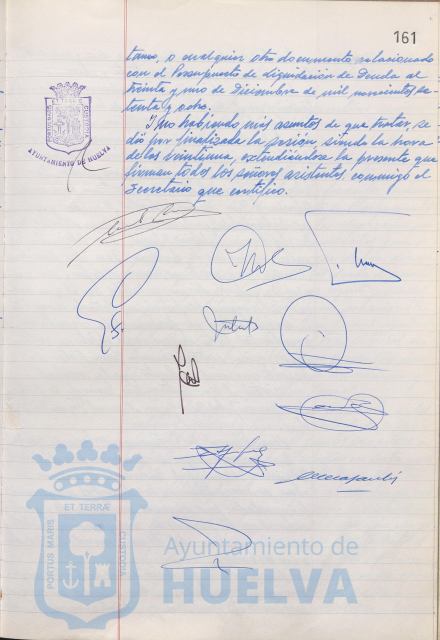 161
tamo, o cualquier otro documento relacionado
con el Presupuesto de liquidación de Deuda al
treinta y uno de Diciembre de mil novecientos se-
tenta y ocho.
Y no habiendo más asuntos de que tratar, se
dió por finalizada la sesión, siendo la hora
de las veintiuna, extendiéndose la presente que
firman todos los señores asistentes, conmigo el
Secretario que certifico.
PORTUS MARIS ET TERRÆ CUSTODIA
AYUNTAMIENTO DE HUELVA
PORTUS MARIS ET TERRÆ CUSTODIA
Ayuntamiento de
HUELVA